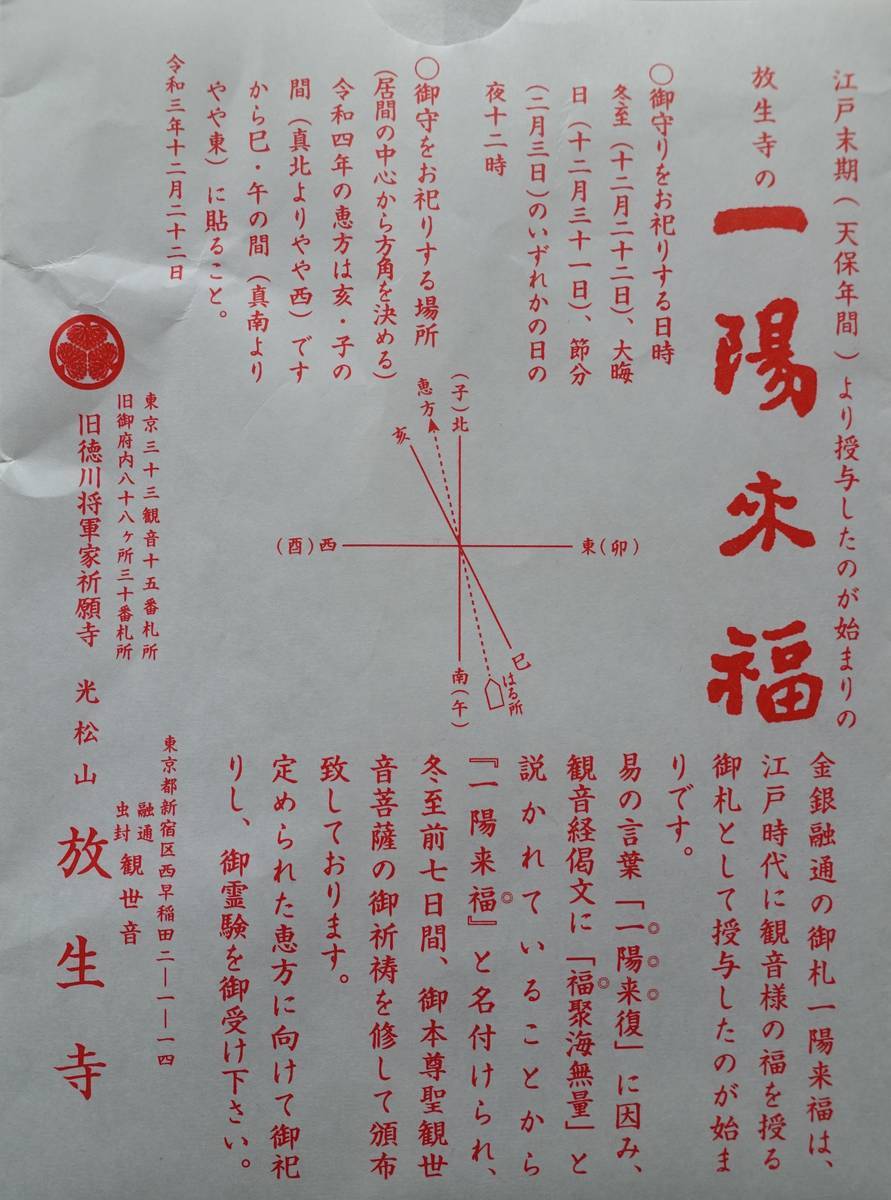 江戸末期(天保年間)より授与したのが始まりの
放生寺の
一陽来福
○御守りをお祀りする日時
冬至(十二月二十二日)、大晦
日(十二月三十一日)、節分
(二月三日)のいずれかの日の
夜十二時
○御守をお祀りする場所
(居間の中心から方角を決める)
令和四年の恵方は亥・子の
間(真北よりやや西)です
から巳・午の間(真南より
やや東)に貼ること。
令和三年十二月二十二日
(子)北
恵方
亥
(酉)西
東(卯)
巳
はる所
南(午)
金銀融通の御札一陽来福は、
江戸時代に観音様の福を授る
御札として授与したのが始ま
りです。
易の言葉「一陽来復」に因み、
観音経偈文に「福聚海無量」と
説かれていることから
『一陽来福』と名付けられ、
冬至前七日間、御本尊聖観世
音菩薩の御祈祷を修して頒布
致しております。
定められた恵方に向けて御祀
りし、御霊験を御受け下さい。
東京三十三観音十五番札所
旧御府内八十八ヶ所三十番札所
旧徳川将軍家祈願寺 光松山 放生寺
東京都新宿区西早稲田二―一―一四
融通
虫封
観世音